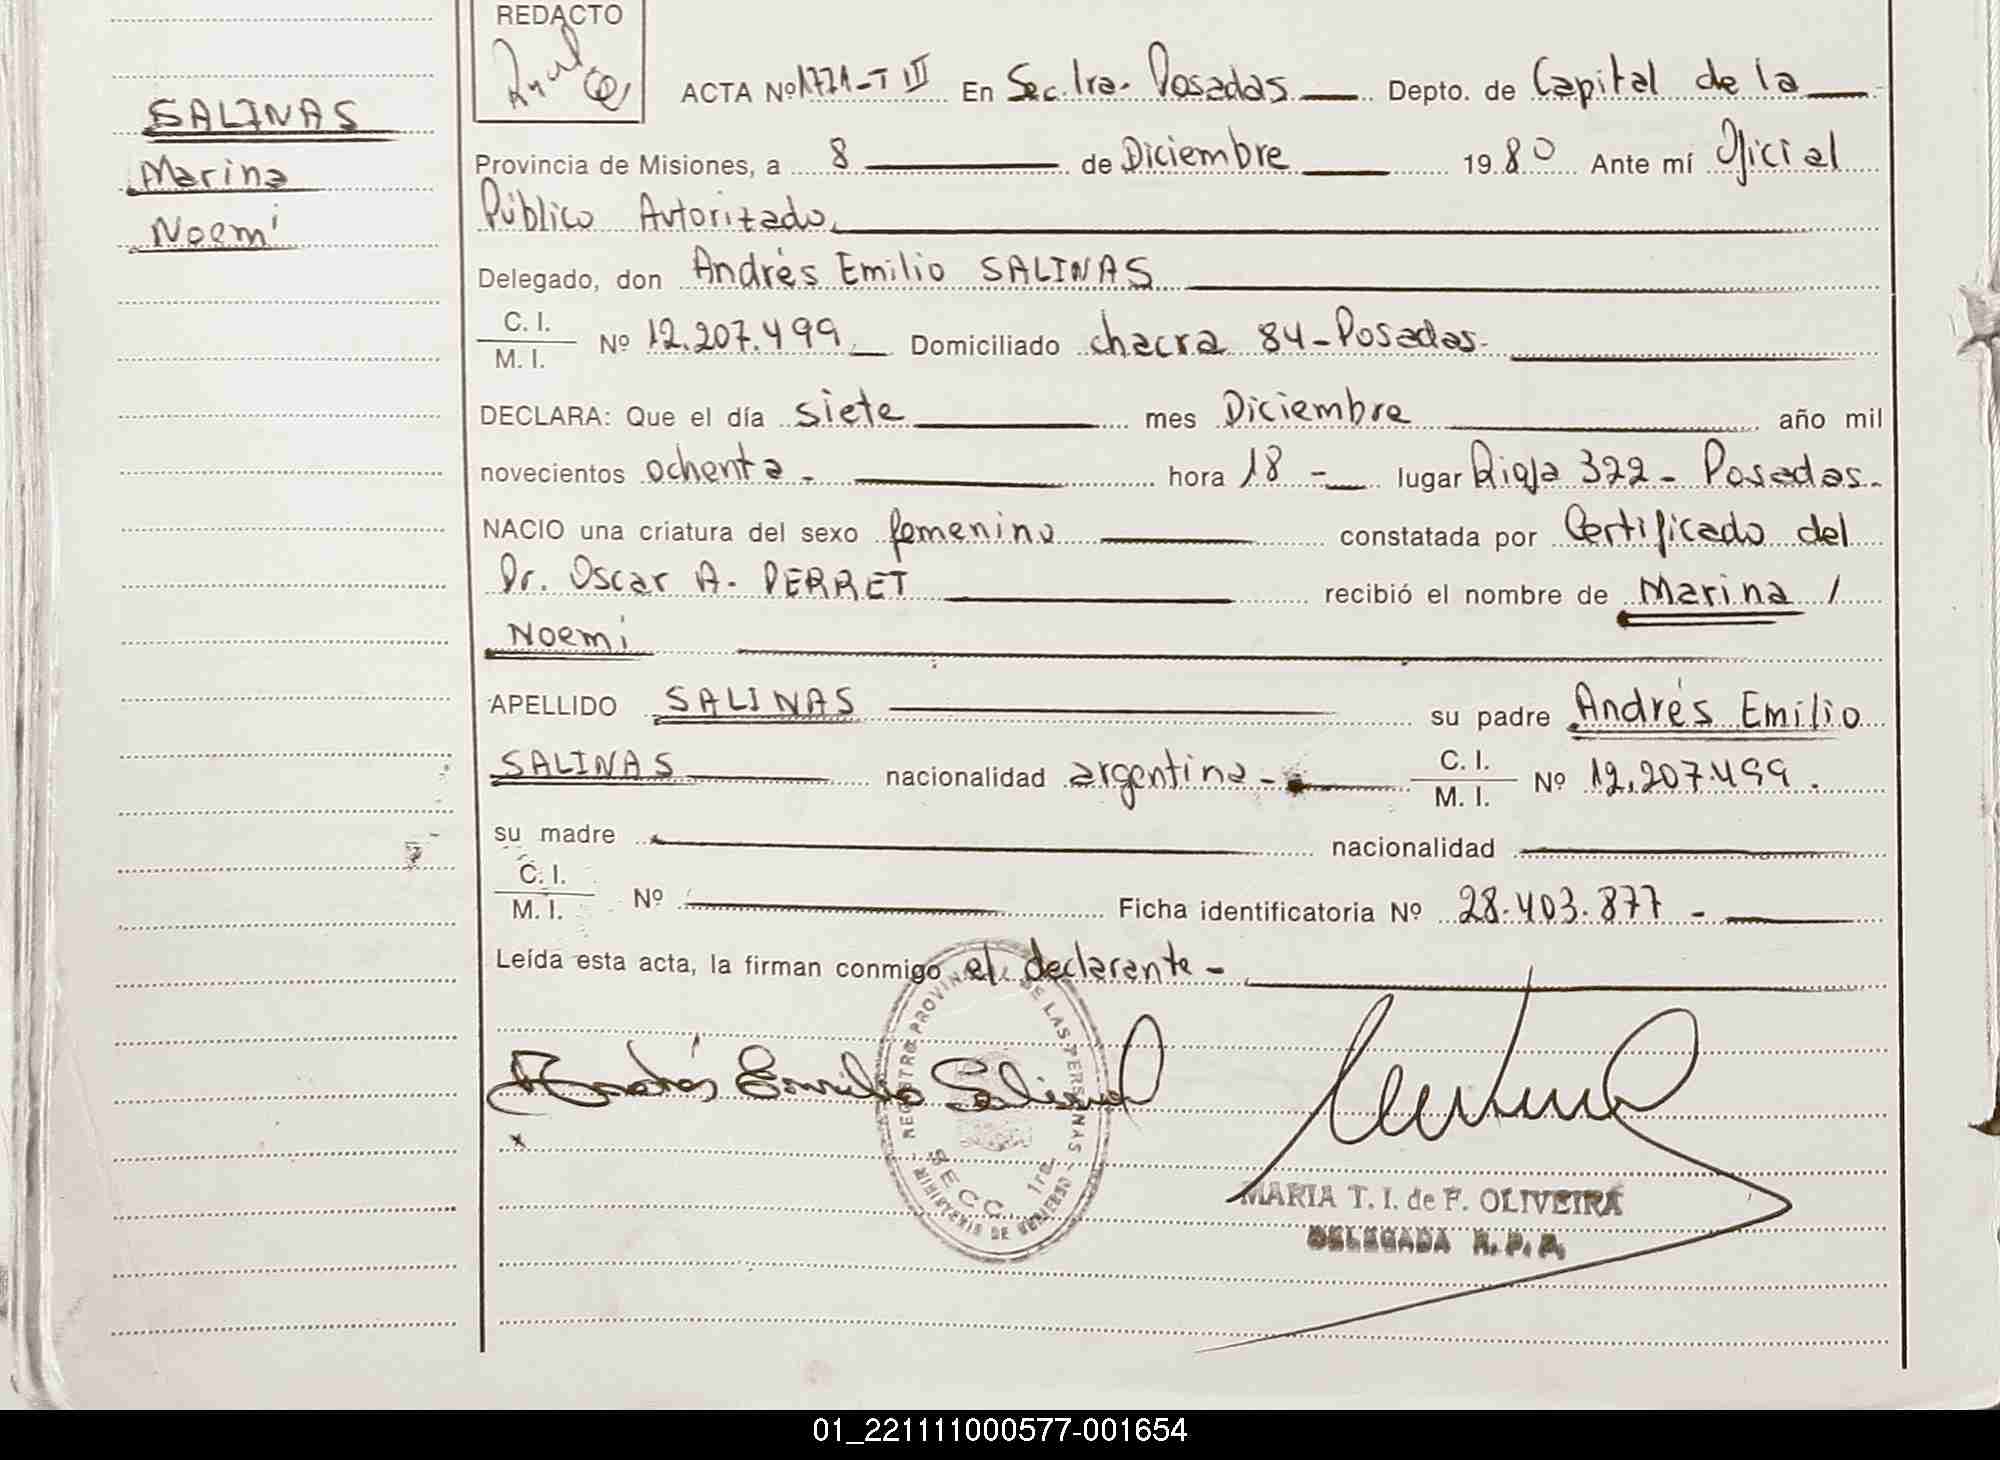 REDACTO
ACTA Nº 1771-T III En Sec. 1ra. Posadas Depto. de Capital de la
SALINAS
Marina
Noemí
Provincia de Misiones, a 8 de Diciembre 1980 Ante mí Oficial
Público Autorizado,
Delegado, don Andrés Emilio SALINAS
C. I.
M. I. Nº 12.207.499 Domiciliado chacra 84-Posadas-
DECLARA: Que el día siete mes Diciembre año mil
novecientos ochenta - hora 18 - lugar Rioja 322 - Posadas.
NACIO una criatura del sexo femenino constatada por Certificado del
Dr. Oscar A. PERRET recibió el nombre de Marina /
Noemí
APELLIDO SALINAS su padre Andrés Emilio
SALINAS nacionalidad argentina - C. I.
M. I. Nº 12.207.499.
su madre nacionalidad
C. I.
M. I. Nº Ficha identificatoria Nº 28.403.877 -
Leída esta acta, la firman conmigo el declarante -
Andrés Emilio Salinas
REGISTRO PROVINCIAL DE LAS PERSONAS - MINISTERIO DE GOBIERNO
SECC. 1ra.
MARIA T. I. de F. OLIVEIRA
DELEGADA R. P. P.
01_221111000577-001654